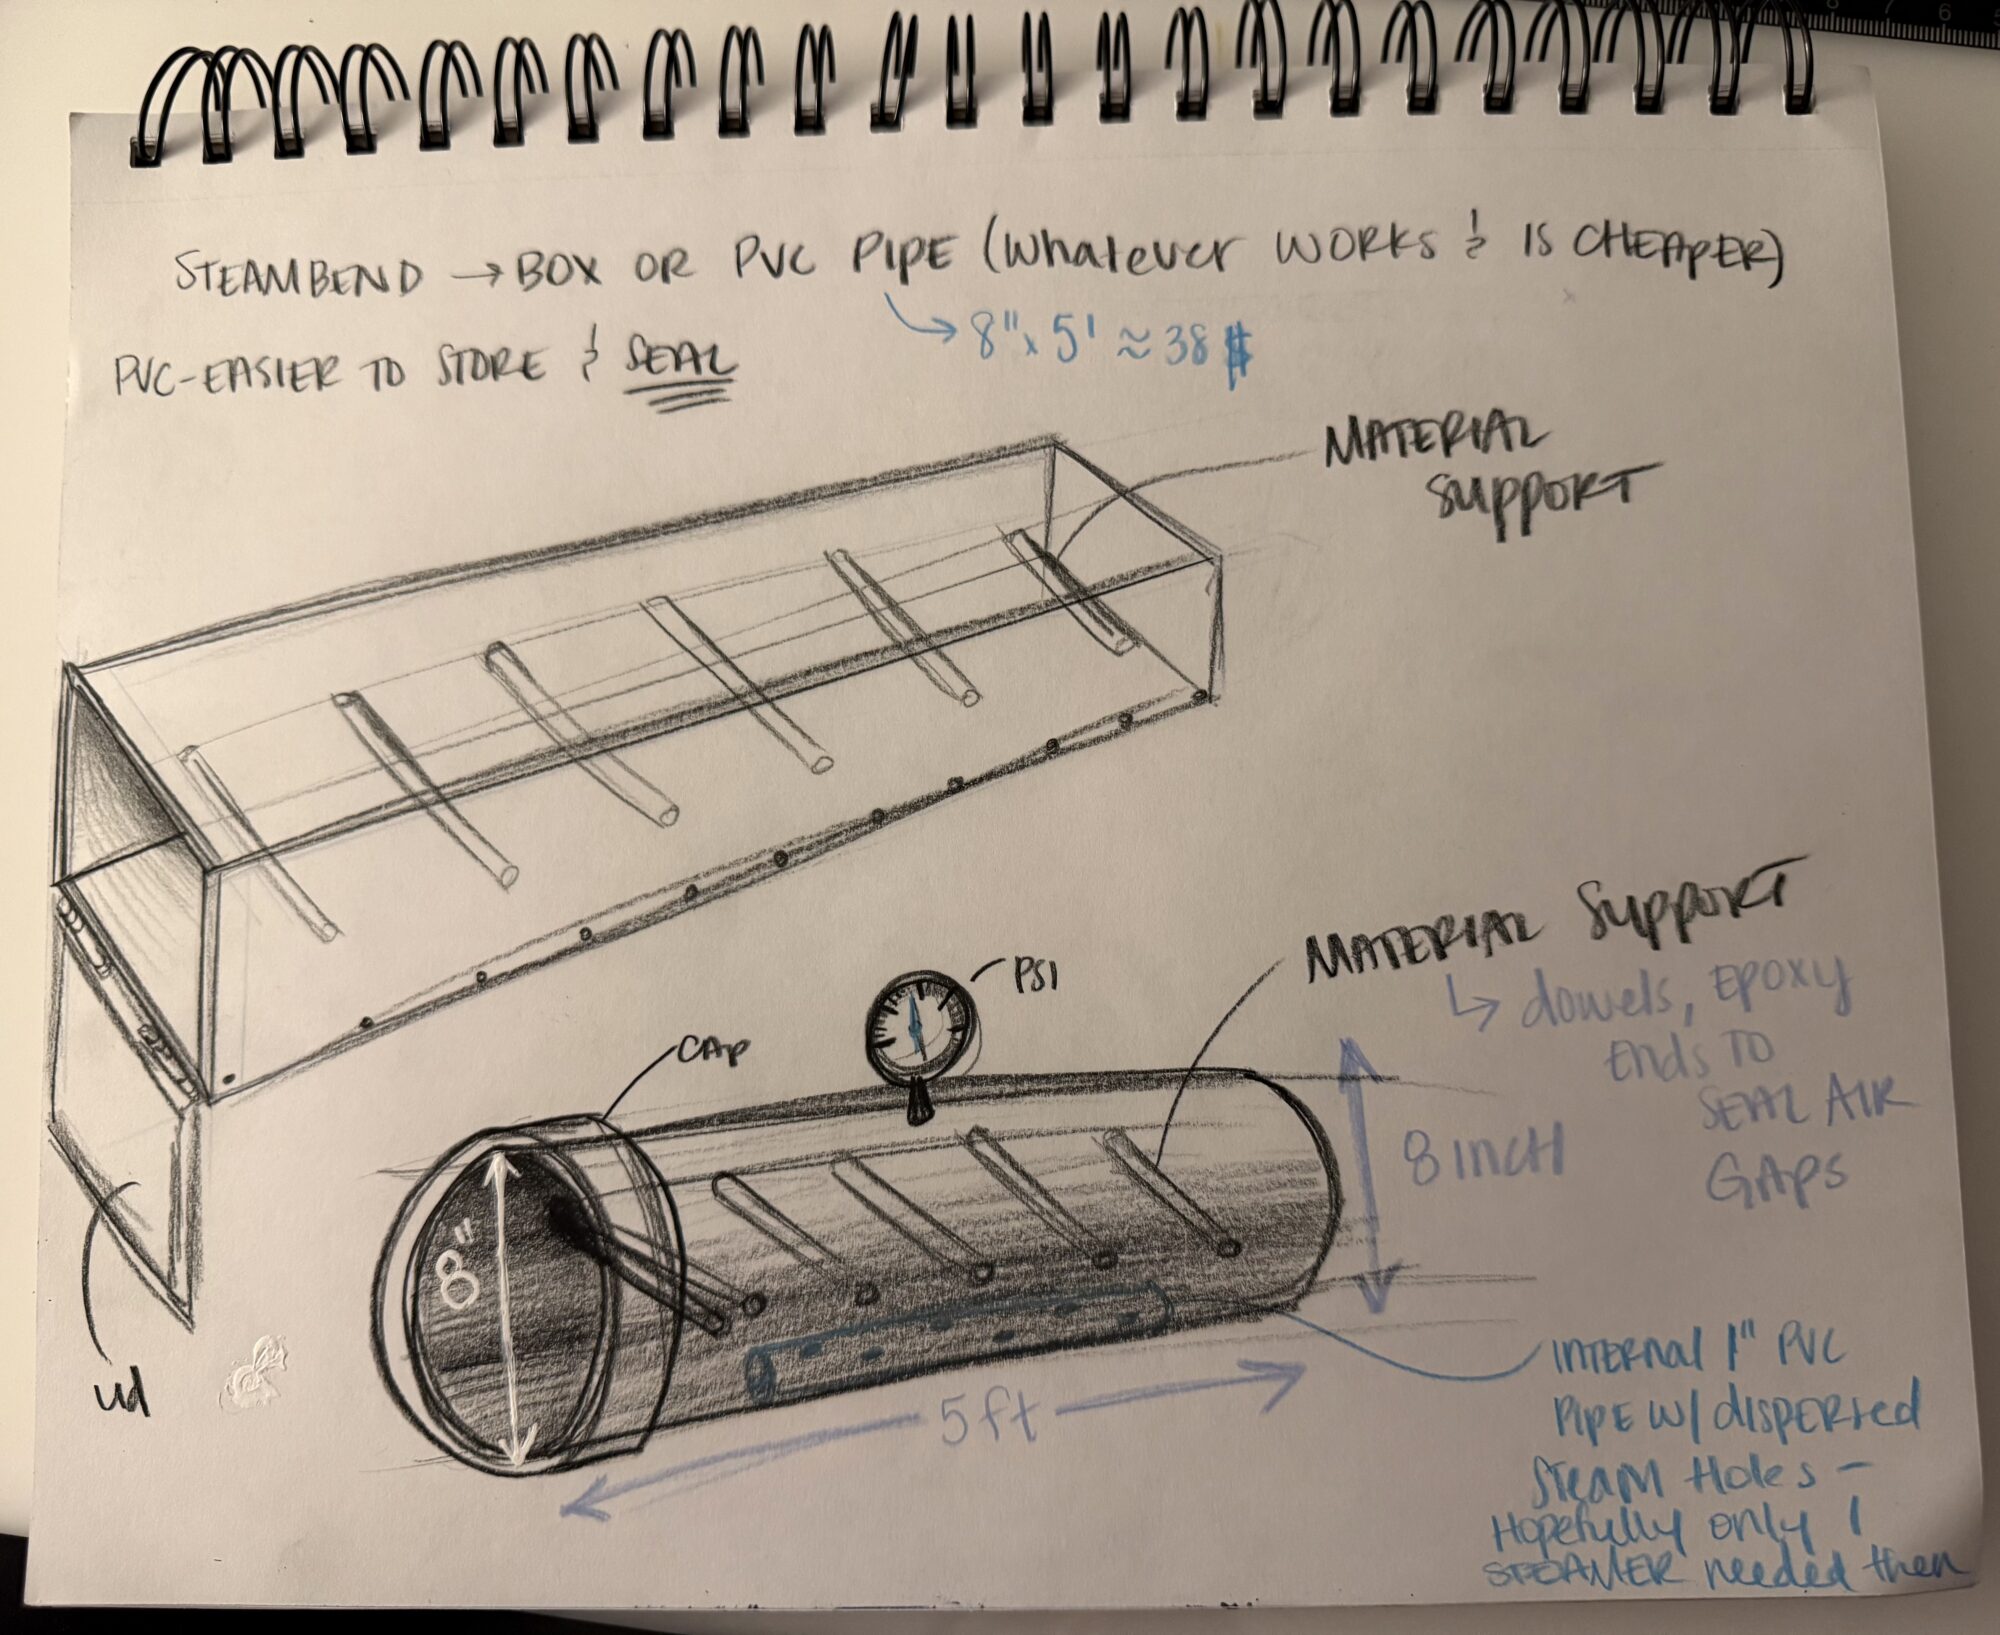 STEAMBEND → BOX OR PVC PIPE (Whatever WORKS & IS CHEAPER)
↳ 8" x 5' ≈ 38 $
PVC-EASIER TO STORE & SEAL
MATERIAL
SUPPORT
MATERIAL SUPPORT
↳ dowels, EPOXY
ENDS TO
SEAL AIR
GAPS
PSI
CAP
8 INCH
8"
5ft
lid
INTERNAL 1" PVC
PIPE W/ DISPERSED
STEAM HOLES -
Hopefully only 1
STEAMER needed then
8
6